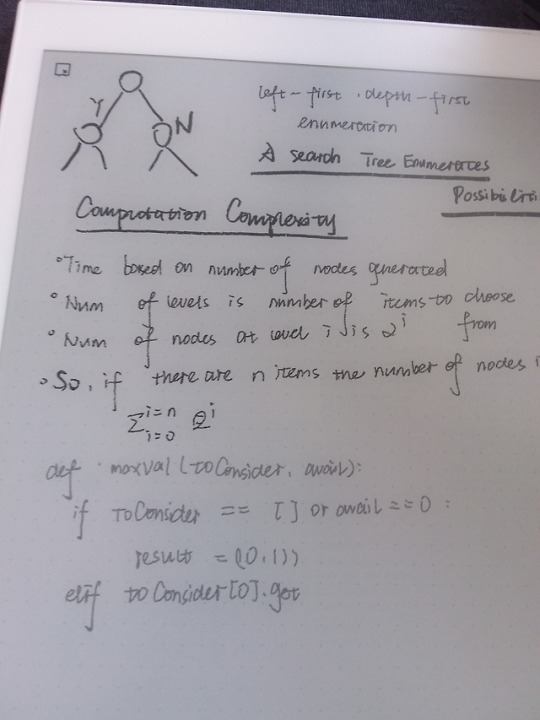 Y
N
left-first. depth-first
enumeration
A search Tree Enumerates
Possibiliti
Computation Complexity
Time based on number of nodes generated
Num of levels is number of items to choose
from
Num of nodes at level i is 2^i
So, if there are n items the number of nodes i
Σ i=n i=0 2^i
def maxVal (toConsider, avail):
if ToConsider == [] or avail == 0 :
result = (0, ())
elif toConsider[0].get